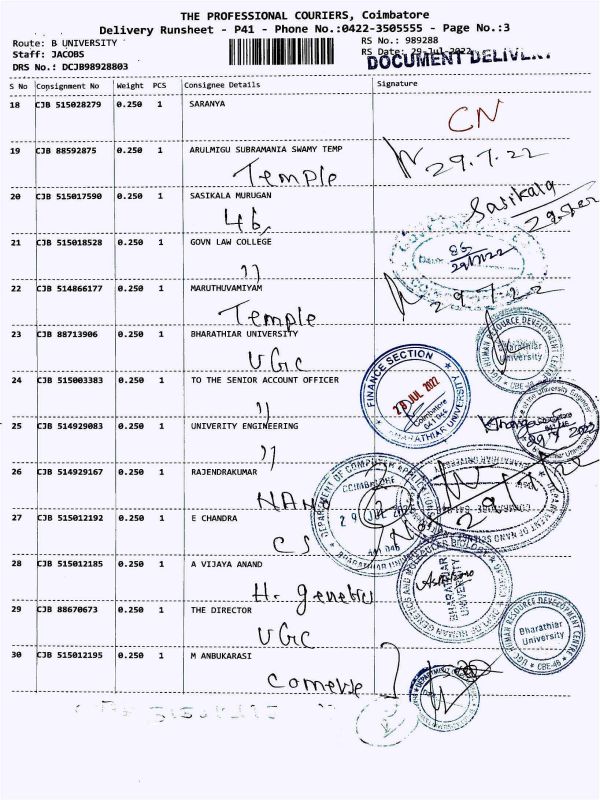 THE PROFESSIONAL COURIERS, Coimbatore
Delivery Runsheet - P41 - Phone No.:0422-3505555 - Page No.:3
Route: B UNIVERSITY
Staff: JACOBS
DRS No.: DCJB98928803
RS No.: 989288
RS Date: 29-Jul-2022
DOCUMENT DELIVERY
S No Consignment No Weight PCS Consignee Details Signature
18 CJB 515028279 0.250 1 SARANYA
CN
19 CJB 88592875 0.250 1 ARULMIGU SUBRAMANIA SWAMY TEMP
Temple 29.7.22
20 CJB 515017590 0.250 1 SASIKALA MURUGAN
Sasikala
21 CJB 515018528 0.250 1 GOVN LAW COLLEGE
22 CJB 514866177 0.250 1 MARUTHUVAMIYAM
Temple 29.7.22
23 CJB 88713906 0.250 1 BHARATHIAR UNIVERSITY
UGC
UGC HUMAN RESOURCE DEVELOPMENT CENTRE
Bharathiar
University
CBE-46
24 CJB 515003383 0.250 1 TO THE SENIOR ACCOUNT OFFICER
FINANCE SECTION
JUL 2022
Coimbatore
641 046
BHARATHIAR UNIVERSITY
25 CJB 514929083 0.250 1 UNIVERITY ENGINEERING
26 CJB 514929167 0.250 1 RAJENDRAKUMAR
NANO
DEPARTMENT OF COMPUTER APPLICATIONS
COIMBATORE
29 JUL
641 046
27 CJB 515012192 0.250 1 E CHANDRA
CS
28 CJB 515012185 0.250 1 A VIJAYA ANAND
H. genetic
BHARATHIAR
UNIVERSITY
29 CJB 88670673 0.250 1 THE DIRECTOR
UGC
UGC HUMAN RESOURCE DEVELOPMENT CENTRE
Bharathiar
University
CBE-46
30 CJB 515012195 0.250 1 M ANBUKARASI